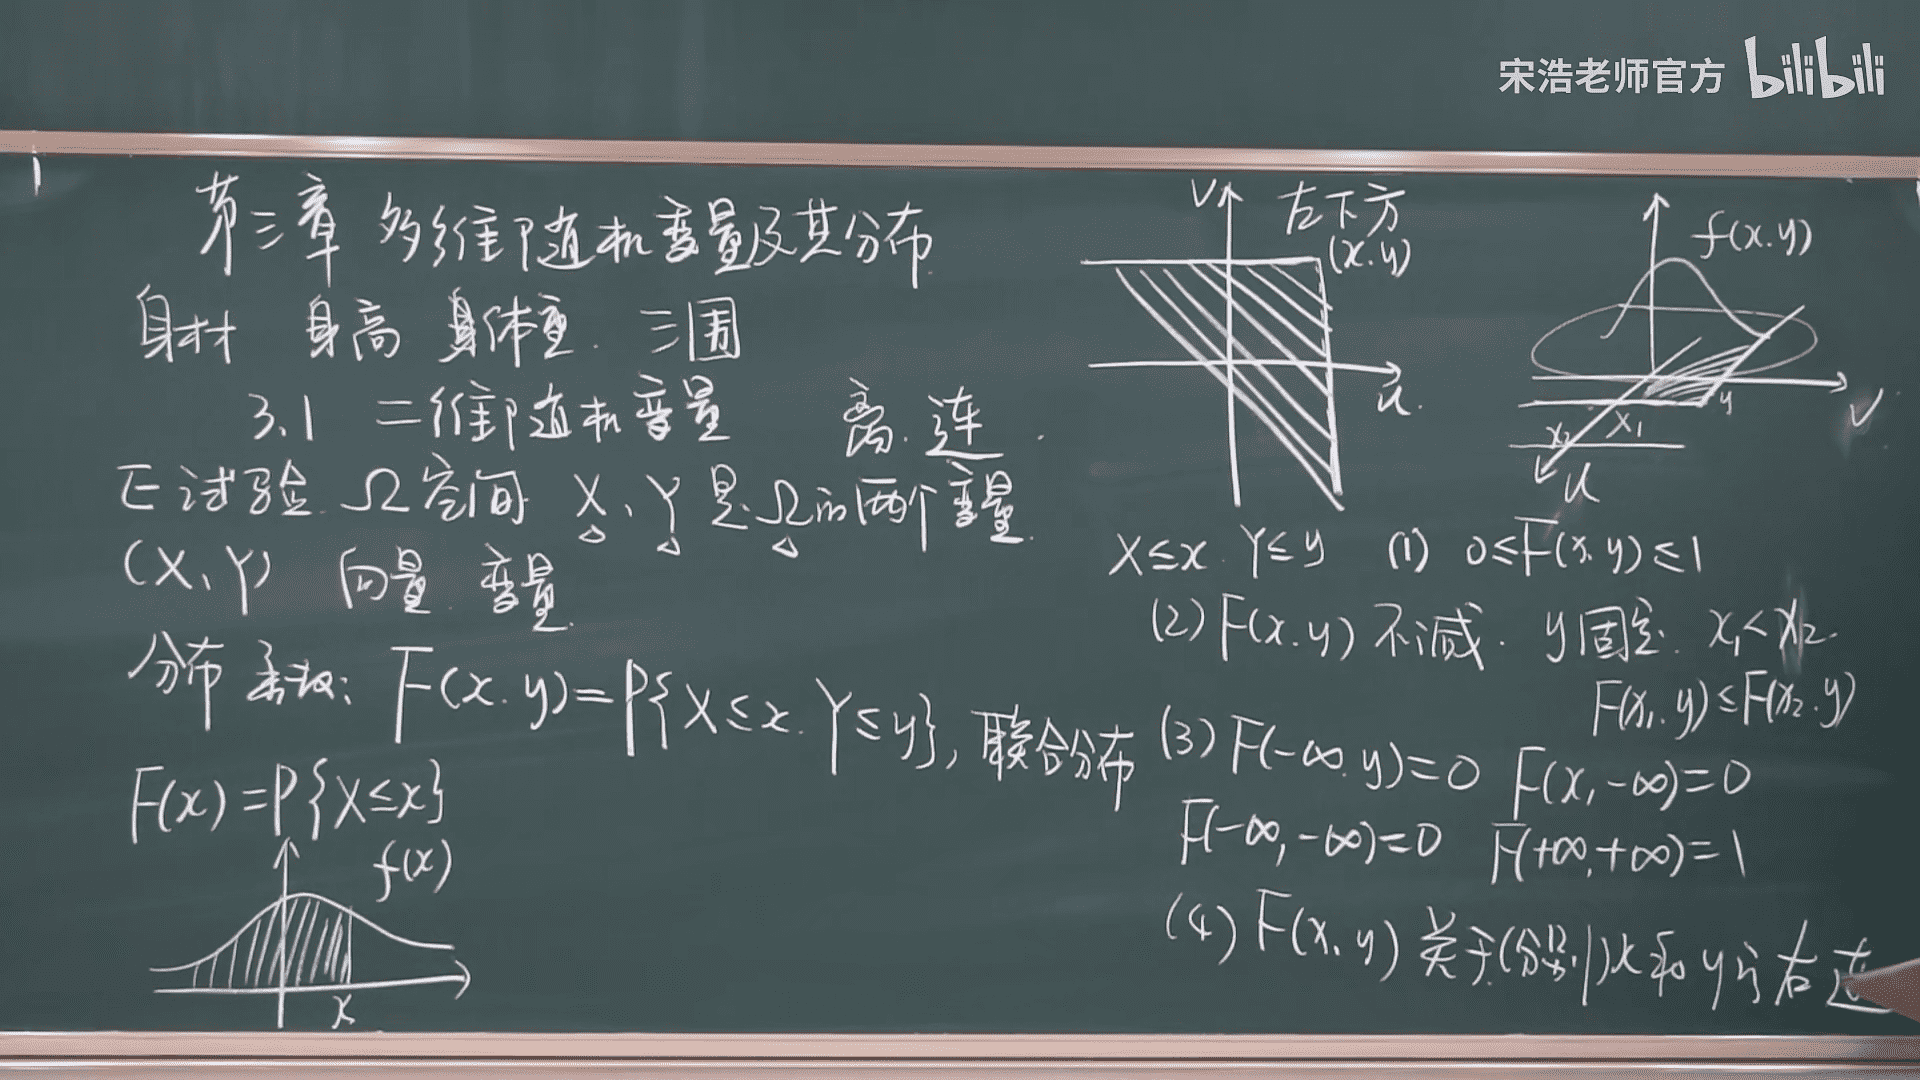 宋浩老师官方 bilibili
第三章 多维随机变量及其分布
身材 身高 身体重. 三围
3.1 二维随机变量 离. 连.
E试验. Ω空间 X、Y是Ω的两个变量.
(X、Y) 向量. 变量.
分布函数: F(x.y)=P{X≤x. Y≤y}, 联合分布
F(x)=P{X≤x}
f(x)
x
V 左下方
(x.y)
u.
f(x.y)
y
V
x₂ X₁
u
X≤x. Y≤y (1) 0≤F(x.y)≤1
(2) F(x.y) 不减. y固定. x₁<x₂.
F(x₁.y)≤F(x₂.y)
(3) F(-∞.y)=0 F(x,-∞)=0
F(-∞,-∞)=0 F(+∞,+∞)=1
(4) F(x.y) 关于(分别)x和y 右连